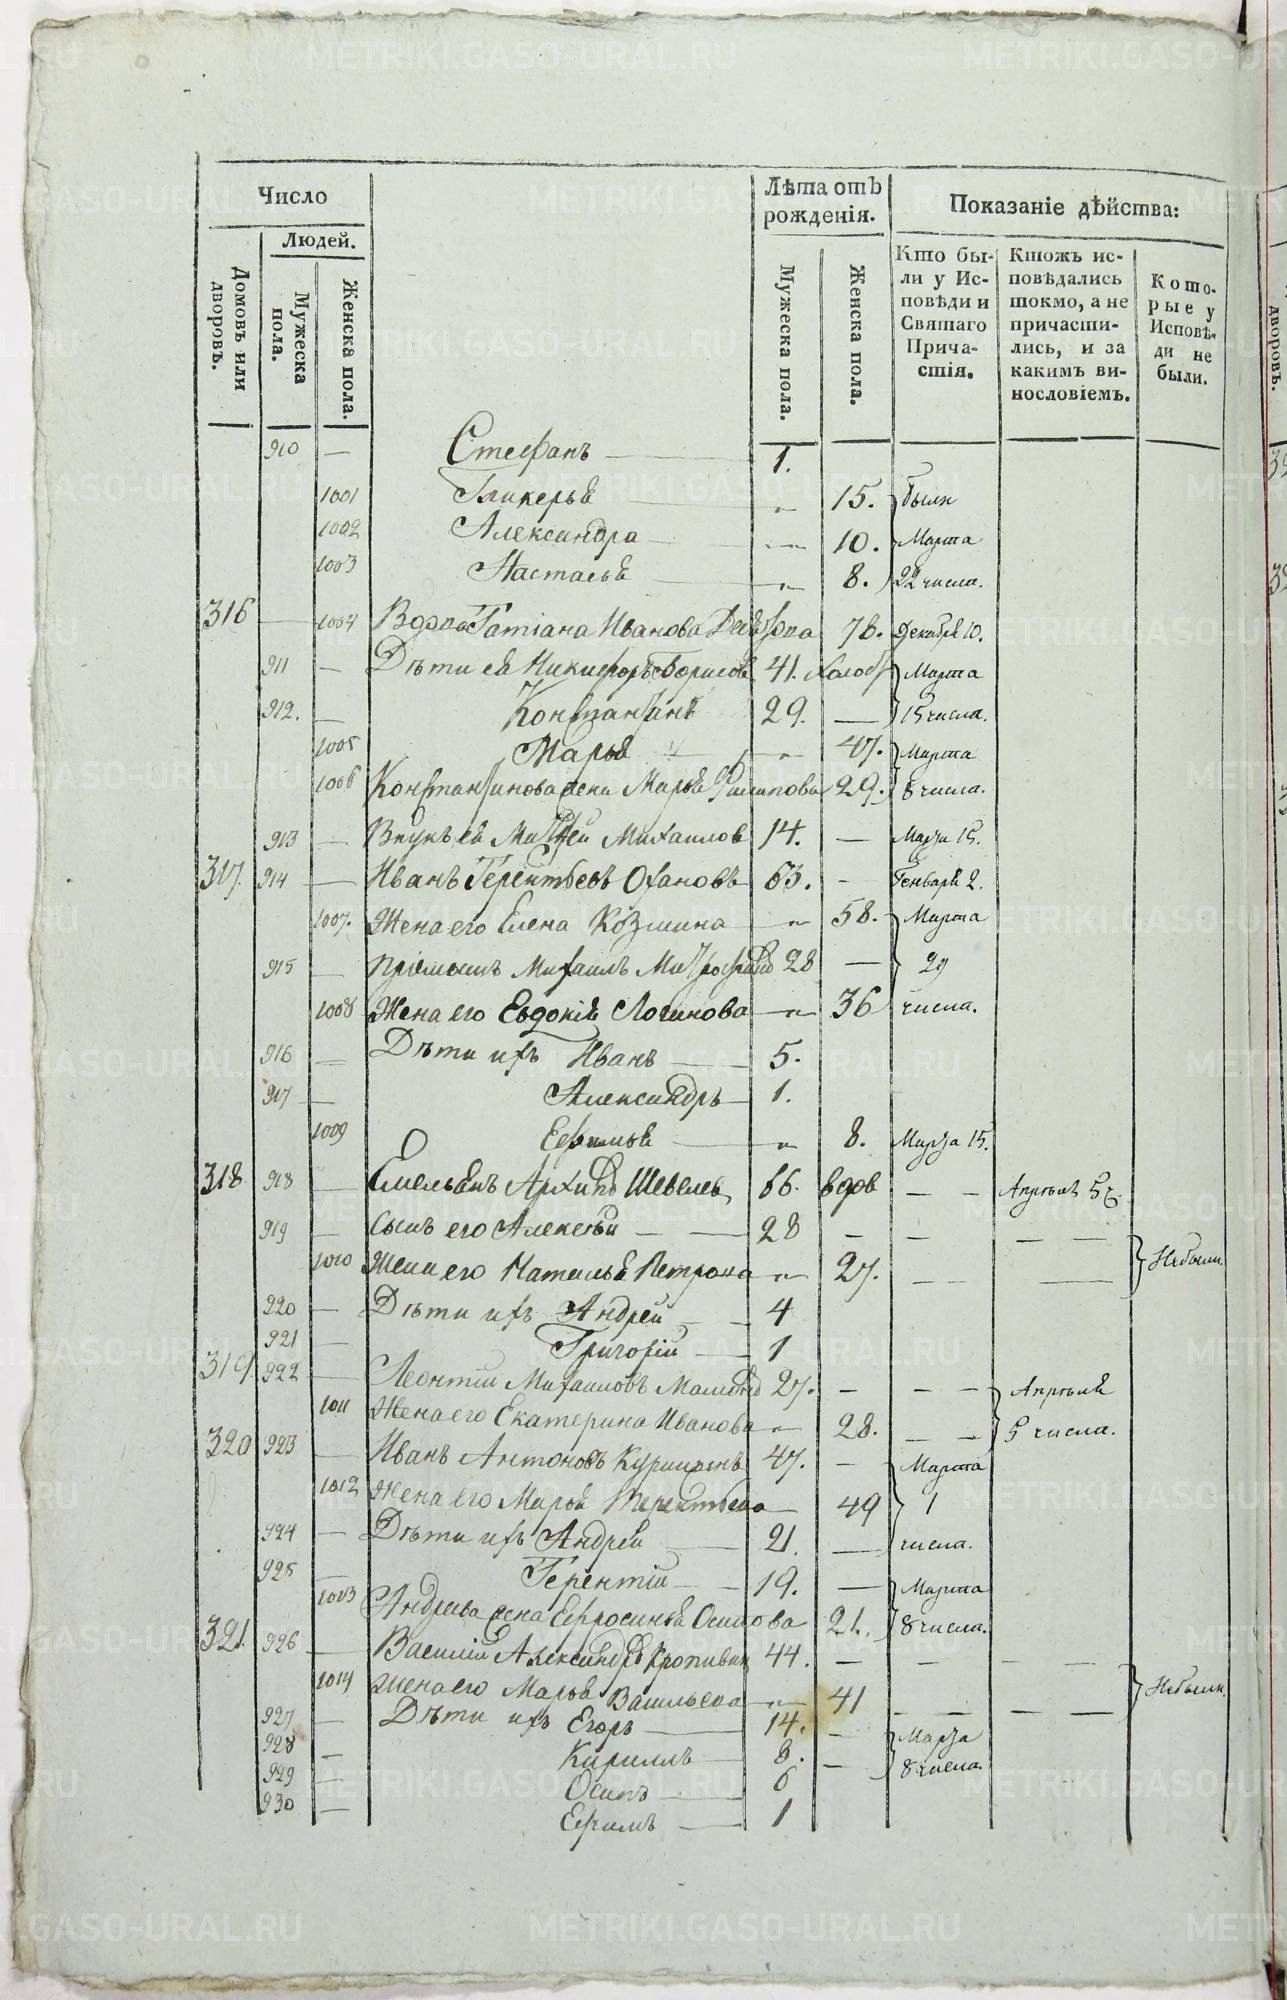 Число
Людей.
Домовъ или дворовъ.
Мужеска пола.
Женска пола.
Лѣта отъ рожденія.
Мужеска пола.
Женска пола.
Показаніе дѣйства:
Кто были у Исповѣди и Святаго Причастія.
Ктожъ исповѣдались токмо, а не причастились, и за какимъ винословіемъ.
Которые у Исповѣди не были.
910 — Стефанъ — 1.
1001 Гликерья — " 15. были
1002 Александра — " 10. Марта
1003 Настасья — " 8. 22 числа.
316 — 1004 Вдова Татіана Иванова 78. Декабря 10.
911 — Дѣти ея Никифоръ Борисов 41. холос Марта
912. — Константинъ 29. — 15 числа.
1005 Марья — " 47. Марта
1006 Константинова жена Марья Филипова 29. 8 числа.
913 — Внукъ ея Михаилов 14. — Марта 15.
317. 914 — Иванъ Терентьевъ 63. — Генваря 2.
1007. Жена его Елена Козмина — " 58. Марта
915 — Михаилъ Митрофанов 28 — 29
1008 Жена его Евдокія Логинова — " 36 числа.
916 — Дѣти ихъ Иванъ — 5.
917 — Александръ — 1.
1009 Ефимья — " 8. Марта 15.
318 918 — Емельянъ Архипов Шевелев 66. вдов — — Апрѣля 5 ч.
919 — Сынъ его Алексѣй — — 28 — — — —
1010 Жена его Наталья Петрова — " 27. — — — Небыли.
920 — Дѣти ихъ Андрей — — 4
921 — Григорій — 1
319. 922 — Леонтій Михаиловъ 27. — — — Апрѣля
1011 Жена его Екатерина Иванова — " 28. — — 5 числа.
320 923 — Иванъ Антоновъ 47. — Марта
1012 Жена его Марья Терентьева — 49 1
924 — Дѣти ихъ Андрей — 21. — числа.
925 — Терентій — — 19. — Марта
1013 Андреева жена Ефросинья Осипова 21. 8 числа.
321. 926 — Василій Александров Кропивин 44. — — — —
1014 Жена его Марья Васильева — " 41 — — — — Небыли.
927 — Дѣти ихъ Егоръ — 14. — Марта
928 — Кирилъ — 8. — 8 числа.
929 — Осипъ — 6
930 — Ефимъ — 1
дворовъ.
METRIKI.GASO-URAL.RU